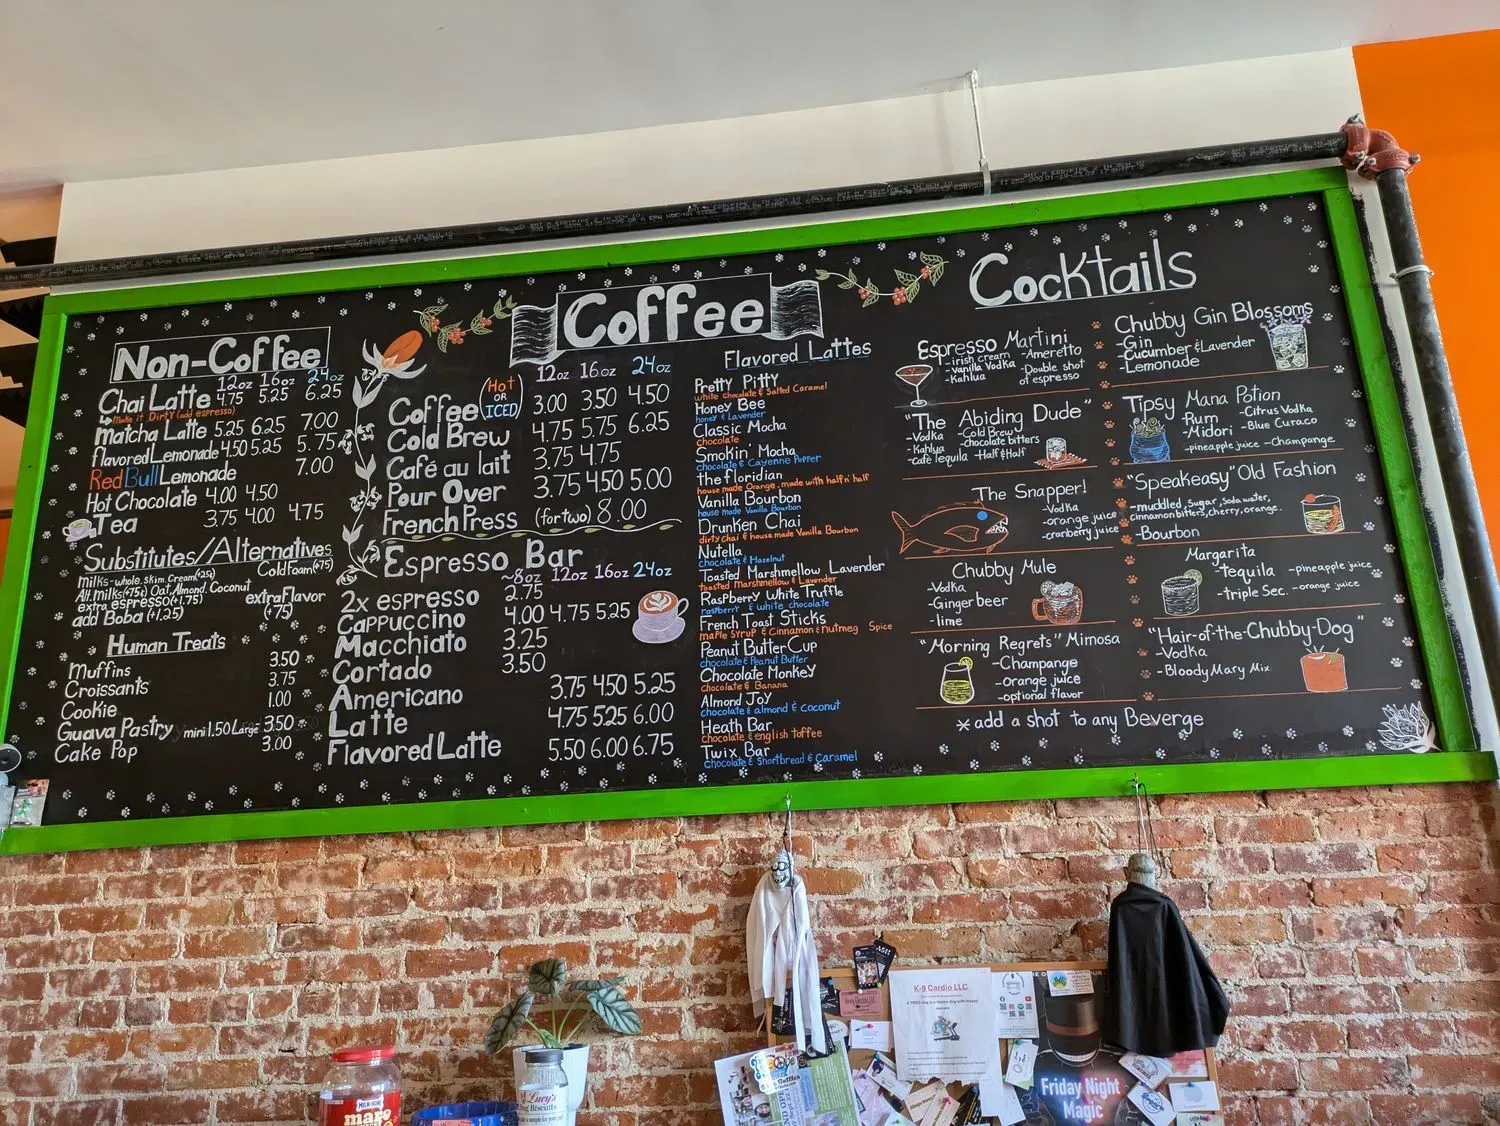 Non-Coffee
12oz 16oz 24oz
Chai Latte 4.75 5.25 6.25
↳ make it Dirty (add espresso)
Matcha Latte 5.25 6.25 7.00
flavored Lemonade 4.50 5.25 5.75
Red Bull Lemonade 7.00
Hot Chocolate 4.00 4.50
Tea 3.75 4.00 4.75
Substitutes/Alternatives
Milks-whole, skim, Cream(+25¢) Cold Foam(+75)
Alt. milks(+75¢) Oat, Almond, Coconut
extra espresso(+1.75) extra Flavor
add Boba (+1.25) (+75)
Human Treats
Muffins 3.50
Croissants 3.75
Cookie 1.00
Guava Pastry mini 1.50 Large 3.50
Cake Pop 3.00
Coffee
12oz 16oz 24oz
Coffee (Hot OR ICED) 3.00 3.50 4.50
Cold Brew 4.75 5.75 6.25
Café au lait 3.75 4.75
Pour Over 3.75 4.50 5.00
French Press (for two) 8.00
Espresso Bar
~8oz 12oz 16oz 24oz
2x espresso 2.75
Cappuccino 4.00 4.75 5.25
Macchiato 3.25
Cortado 3.50
Americano 3.75 4.50 5.25
Latte 4.75 5.25 6.00
Flavored Latte 5.50 6.00 6.75
Flavored Lattes
Pretty Pitty
white chocolate & Salted Caramel
Honey Bee
honey & Lavender
Classic Mocha
chocolate
Smokin' Mocha
chocolate & Cayenne Pepper
The Floridian
house made Orange, made with half n' half
Vanilla Bourbon
house made Vanilla Bourbon
Drunken Chai
dirty chai & house made Vanilla Bourbon
Nutella
chocolate & Hazelnut
Toasted Marshmellow Lavender
Toasted Marshmellow & Lavender
Raspberry White Truffle
raspberry & white chocolate
French Toast Sticks
maple Syrup & Cinnamon & nutmeg Spice
Peanut Butter Cup
chocolate & Peanut Butter
Chocolate Monkey
Chocolate & Banana
Almond Joy
chocolate & almond & Coconut
Heath Bar
chocolate & english toffee
Twix Bar
chocolate & Shortbread & Caramel
Cocktails
Espresso Martini
-irish cream -Ameretto
-Vanilla Vodka -Double shot
-Kahlua of espresso
"The Abiding Dude"
-Vodka -Cold Brew
-Kahlua -chocolate bitters
-cafe tequila -Half & Half
The Snapper!
-Vodka
-orange juice
-cranberry juice
Chubby Mule
-Vodka
-Ginger beer
-lime
"Morning Regrets" Mimosa
-Champange
-orange juice
-optional flavor
Chubby Gin Blossoms
-Gin
-Cucumber & Lavender
-Lemonade
Tipsy Mana Potion
-Rum -Citrus Vodka
-Midori -Blue Curaco
-pineapple juice -Champange
"Speakeasy" Old Fashion
-muddled, sugar, soda water,
cinnamon bitters, cherry, orange.
-Bourbon
Margarita
-Tequila -pineapple juice
-triple Sec. -orange juice
"Hair-of-the-Chubby-Dog"
-Vodka
-Bloody Mary Mix
* add a shot to any Beverge
K-9 Cardio LLC
Friday Night
Magic
MILK-BONE
Lucy's
Dog Biscuits